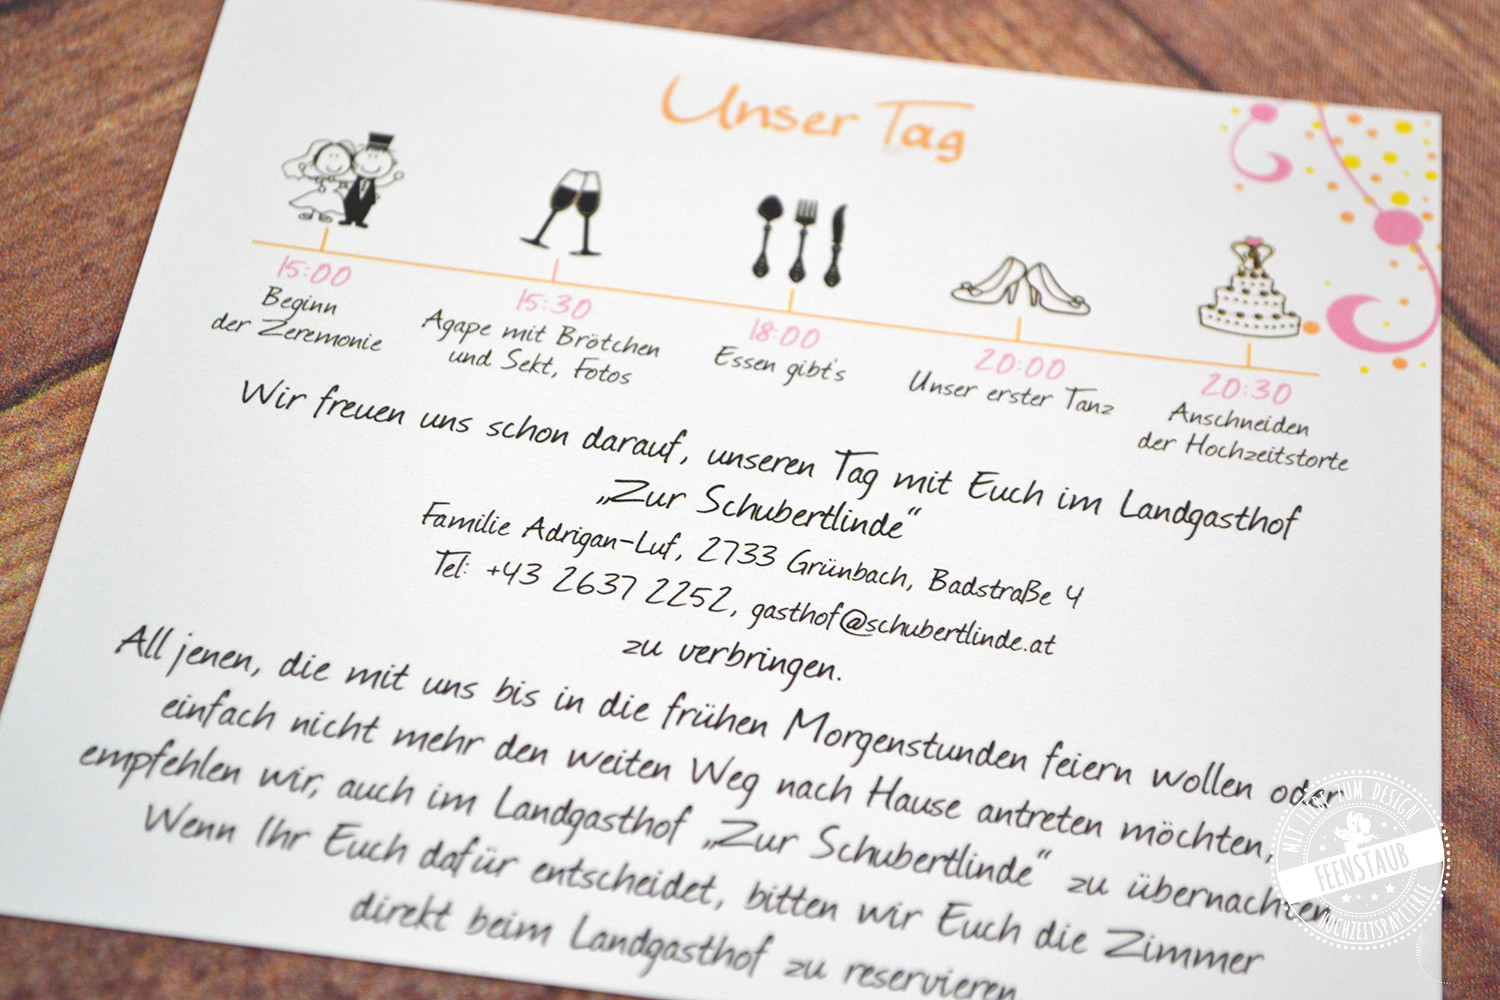 Unser Tag
15:00
Beginn
der Zeremonie
15:30
Agape mit Brötchen
und Sekt, Fotos
18:00
Essen gibt's
20:00
Unser erster Tanz
20:30
Anschneiden
der Hochzeitstorte
Wir freuen uns schon darauf, unseren Tag mit Euch im Landgasthof
„Zur Schubertlinde“
Familie Adrigan-Luf, 2733 Grünbach, Badstraße 4
Tel: +43 2637 2252, gasthof@schubertlinde.at
zu verbringen.
All jenen, die mit uns bis in die frühen Morgenstunden feiern wollen oder
einfach nicht mehr den weiten Weg nach Hause antreten möchten,
empfehlen wir, auch im Landgasthof „Zur Schubertlinde“ zu übernachten.
Wenn Ihr Euch dafür entscheidet, bitten wir Euch die Zimmer
direkt beim Landgasthof zu reservieren
MIT LIEBE ZUM DESIGN
FEENSTAUB
HOCHZEITSPAPETERIE